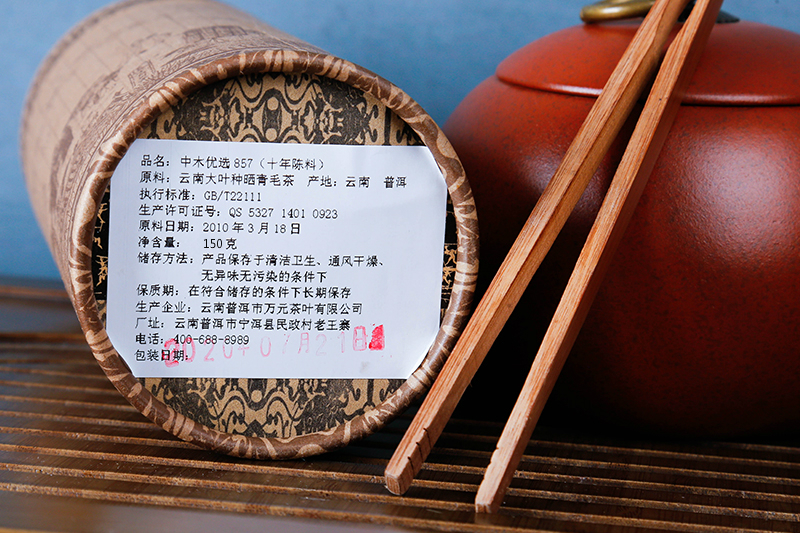 品名：中木优选857（十年陈料）
原料：云南大叶种晒青毛茶 产地：云南 普洱
执行标准：GB/T22111
生产许可证号：QS 5327 1401 0923
原料日期：2010年3月18日
净含量： 150克
储存方法：产品保存于清洁卫生、通风干燥、
无异味无污染的条件下
保质期：在符合储存的条件下长期保存
生产企业：云南普洱市万元茶叶有限公司
厂址：云南普洱市宁洱县民政村老王寨
电话：400-688-8989
包装日期：
2020年07月21日